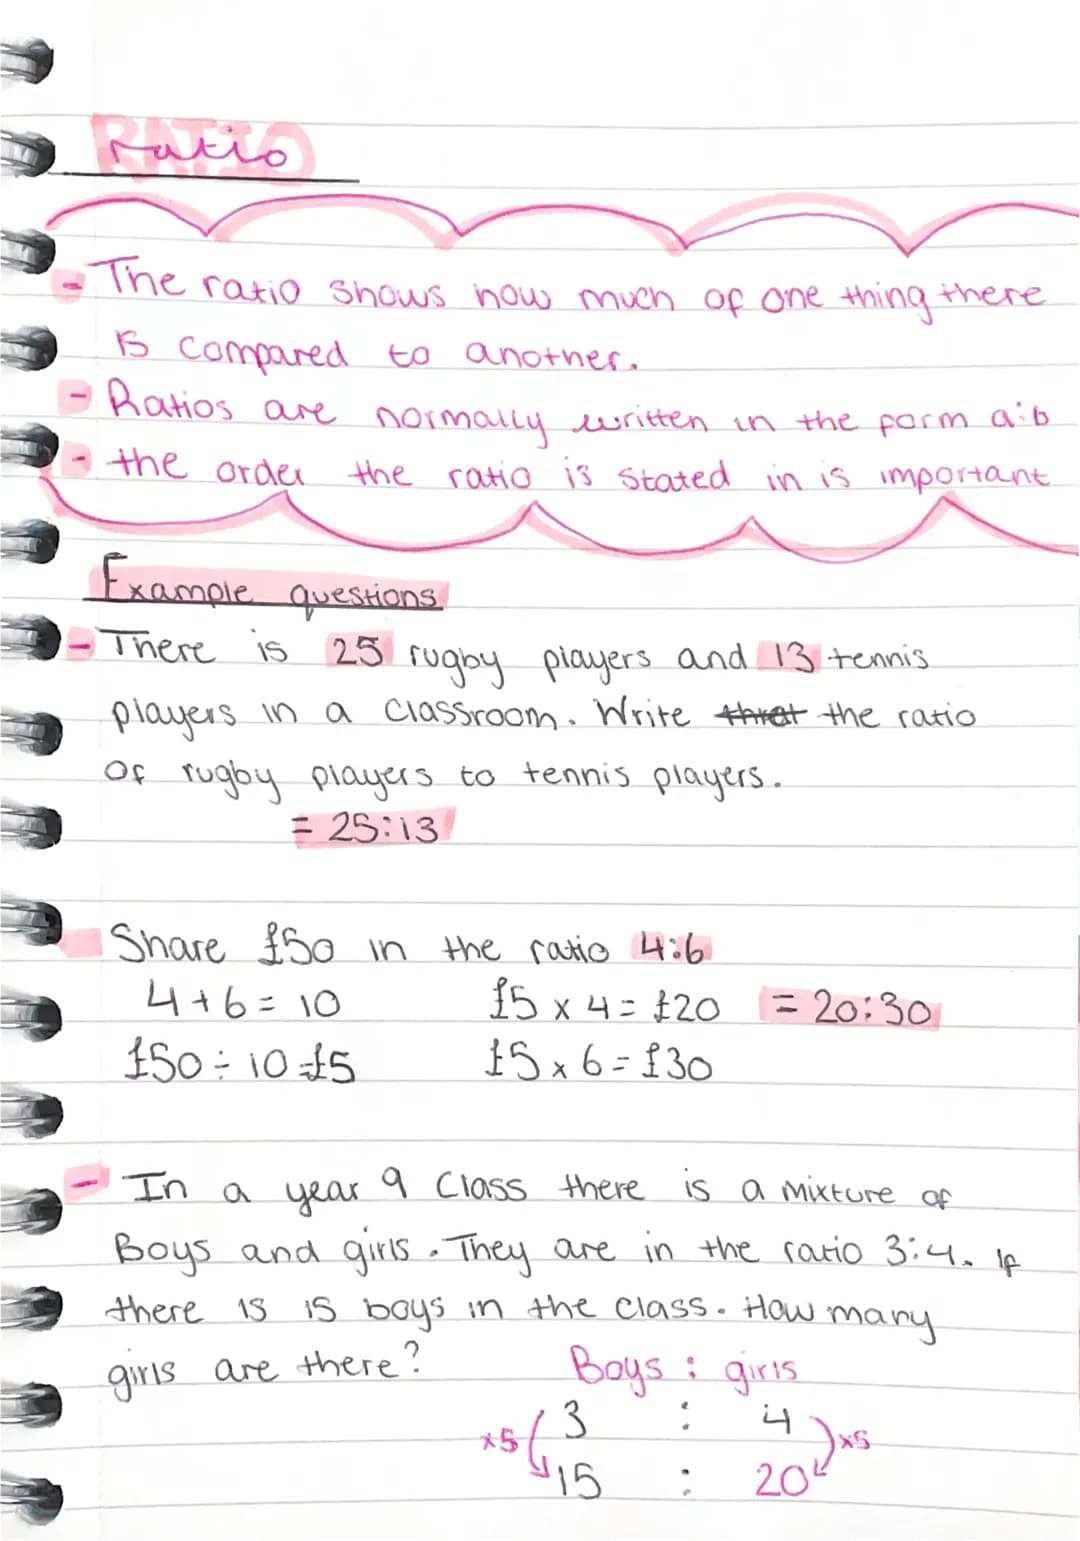 Ratio
- The ratio shows how much of one thing there
is compared to another.
- Ratios are normally written in the form a:b
- the order the ratio is stated in is important
Example questions
- There is 25 rugby players and 13 tennis
players in a classroom. Write the ratio
of rugby players to tennis players.
= 25:13
Share £50 in the ratio 4:6
4+6= 10 £5 x 4= £20 = 20:30
£50÷10=£5 £5 x 6= £30
- In a year 9 Class there is a mixture of
Boys and girls. They are in the ratio 3:4. If
there is 15 boys in the class. How many
girls are there? Boys : girls
x5 3 : 4 x5
15 : 20